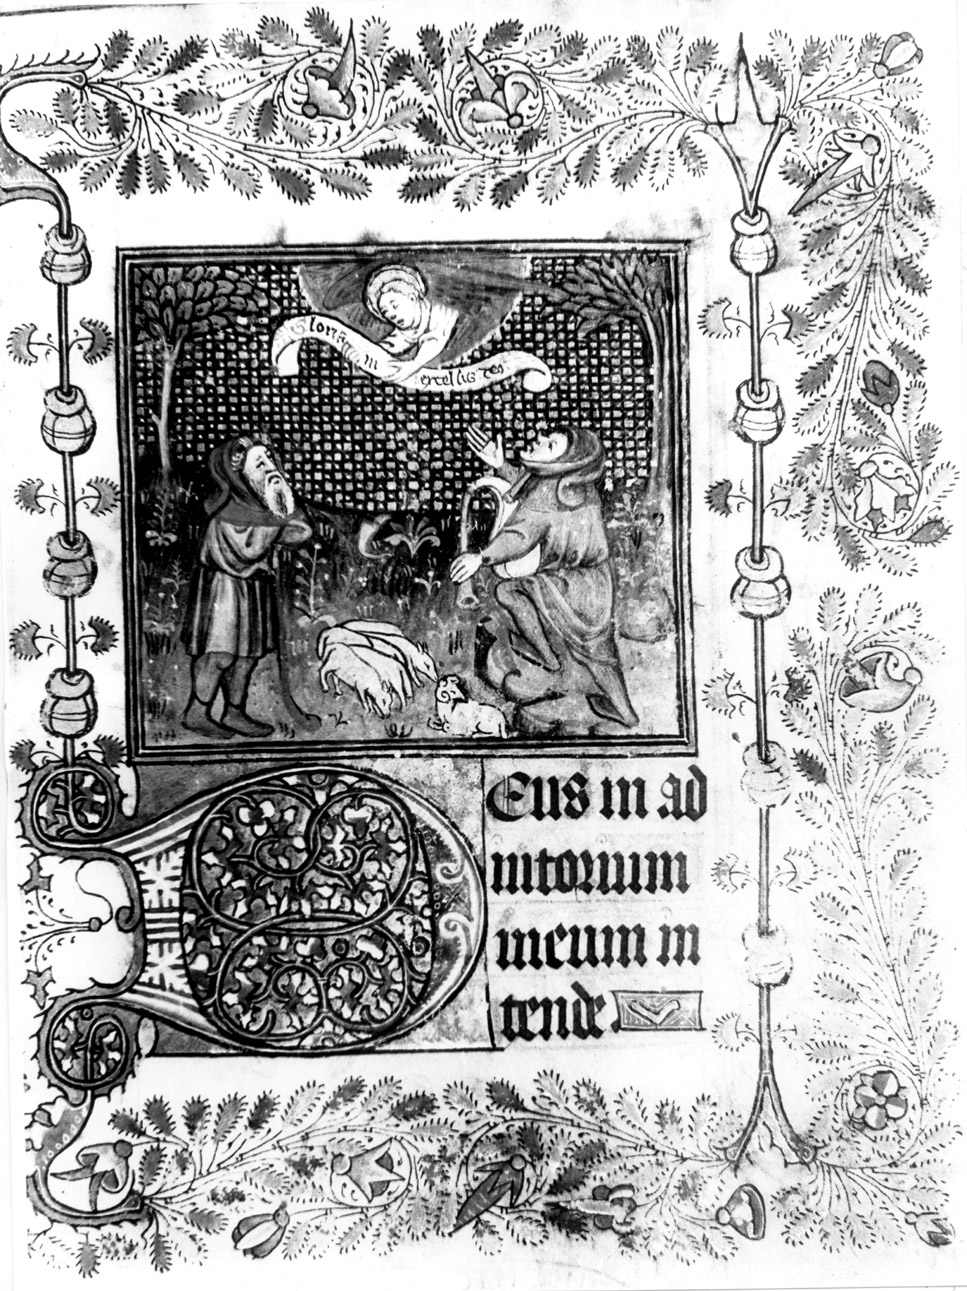 Gloria in excelsis deo
Deus in ad
iutorium
meum in
tende